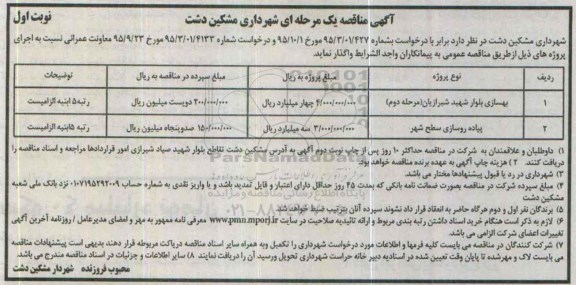 آگهی مناقصه یک مرحله ای شهرداری مشکین دشت
نوبت اول
شهرداری مشکین دشت در نظر دارد برابر با درخواست بشماره ۹۵/۳/۰۱/۴۲۷ مورخ ۹۵/۱۰/۱ و درخواست شماره ۹۵/۳/۰۱/۴۱۳۳ مورخ ۹۵/۹/۲۳ معاونت عمرانی نسبت به اجرای
پروژه های ذیل ازطریق مناقصه عمومی به پیمانکاران واجد الشرایط واگذار نماید.
ردیف نوع پروژه مبلغ پروژه به ریال مبلغ سپرده در مناقصه به ریال توضیحات
۱ بهسازی بلوار شهید شیرازیان(مرحله دوم) ۴/۰۰۰/۰۰۰/۰۰۰ چهار میلیارد ریال ۲۰۰/۰۰۰/۰۰۰ دویست میلیون ریال رتبه۵ ابنیه الزامیست
۲ پیاده روسازی سطح شهر ۳/۰۰۰/۰۰۰/۰۰۰ سه میلیارد ریال ۱۵۰/۰۰۰/۰۰۰ صدوپنجاه میلیون ریال رتبه ۵ابنیه الزامیست
۱) داوطلبان و علاقمندان به شرکت در مناقصه حداکثر ۱۰ روز پس از چاپ نوبت دوم آگهی به آدرس مشکین دشت تقاطع بلوار شهید صیاد شیرازی امور قراردادها مراجعه و اسناد مناقصه را
دریافت کنند. ۲) هزینه چاپ آگهی به عهده برنده مناقصه خواهد بود
۳) شهرداری در رد یا قبول پیشنهادها مختار می باشد.
۴) مبلغ سپرده شرکت در مناقصه بصورت ضمانت نامه بانکی که بمدت ۴۵ روز حداقل دارای اعتبار و قابل تمدید باشد و یا واریز نقدی به شماره حساب ۰۱۰۷۱۹۵۲۹۲۰۰۹ نزد بانک ملی شعبه
مشکین دشت
۵) برندگان نفر اول و دوم هرگاه حاضر به انعقاد قرار داد نشوند سپرده آنان بترتیب ضبط خواهد شد
۶) لازم به ذکر است هنگام خرید اسناد داشتن رتبه بندی مربوط و ارائه تائیدیه صلاحیت در سایت www.pmn.mporj.ir معرفی نامه ممهور به مهر و امضای مدیرعامل / روزنامه آخرین آگهی
تغییرات اعضای شرکت الزامی می باشد.
۷) شرکت کنندگان در مناقصه می بایست کلیه فرمها و اطلاعات مورد درخواست شهرداری را تکمیل وبه همراه سایر اسناد مناقصه دریافت مربوطه قرار دهند بدیهی است پیشنهادات مناقصه
می بایست لاک و مهرشده تا پایان وقت تعیین شده در اسنادبه دبیر خانه حراست شهرداری تحویل ورسید آن را دریافت نمایند ۸) سایر اطلاعات و جزئیات در اسناد مناقصه مندرج می باشد.
محبوب فروزنده شهردار مشکین دشت